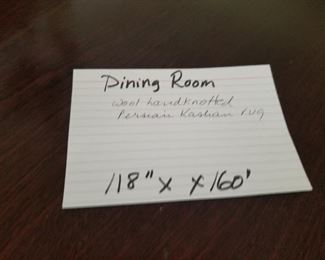 Dining Room
Wool handknotted
Persian Kashan rug
118" x x 160'